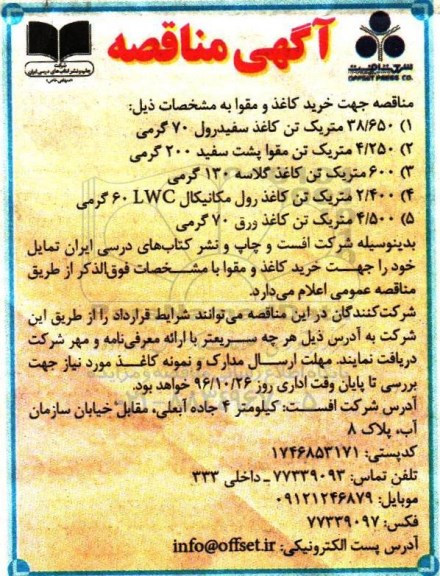 آگهی مناقصه
شرکت
چاپ و نشر کتاب‌های درسی ایران
(سهامی خاص)
شرکت افست
OFFSET PRESS CO.
مناقصه جهت خرید کاغذ و مقوا به مشخصات ذیل:
۱) ۳۸/۶۵۰ متریک تن کاغذ سفیدرول ۷۰ گرمی
۲) ۴/۲۵۰ متریک تن مقوا پشت سفید ۲۰۰ گرمی
۳) ۶۰۰ متریک تن کاغذ گلاسه ۱۳۰ گرمی
۴) ۲/۴۰۰ متریک تن کاغذ رول مکانیکال LWC ۶۰ گرمی
۵) ۴/۵۰۰ متریک تن کاغذ ورق ۷۰ گرمی
بدینوسیله شرکت افست و چاپ و نشر کتاب‌های درسی ایران تمایل
خود را جهت خرید کاغذ و مقوا با مشخصات فوق‌الذکر از طریق
مناقصه عمومی اعلام می‌دارد.
شرکت‌کنندگان در این مناقصه می‌توانند شرایط قرارداد را از طریق این
شرکت به آدرس ذیل هر چه سریعتر با ارائه معرفی‌نامه و مهر شرکت
دریافت نمایند. مهلت ارسال مدارک و نمونه کاغذ مورد نیاز جهت
بررسی تا پایان وقت اداری روز ۹۶/۱۰/۲۶ خواهد بود.
آدرس شرکت افست: کیلومتر ۴ جاده آبعلی، مقابل خیابان سازمان
آب، پلاک ۸
کدپستی: ۱۷۴۶۸۵۳۱۷۱
تلفن تماس: ۷۷۳۳۹۰۹۳ ـ داخلی ۳۳۳
موبایل: ۰۹۱۲۱۲۴۶۸۷۹
فکس: ۷۷۳۳۹۰۹۷
آدرس پست الکترونیکی: info@offset.ir